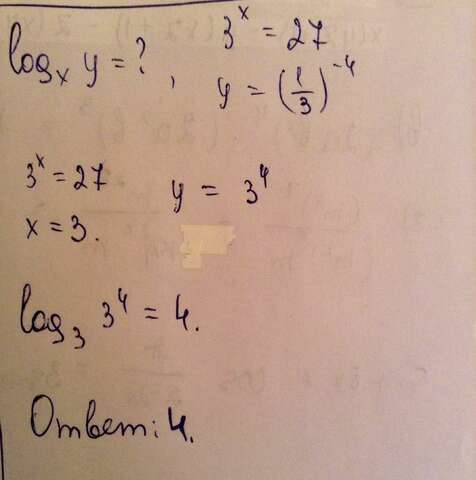 log_x y = ?, 3^x = 27
y = (1/3)^-4
3^x = 27
x = 3.
y = 3^4
log_3 3^4 = 4.
Ответ: 4.